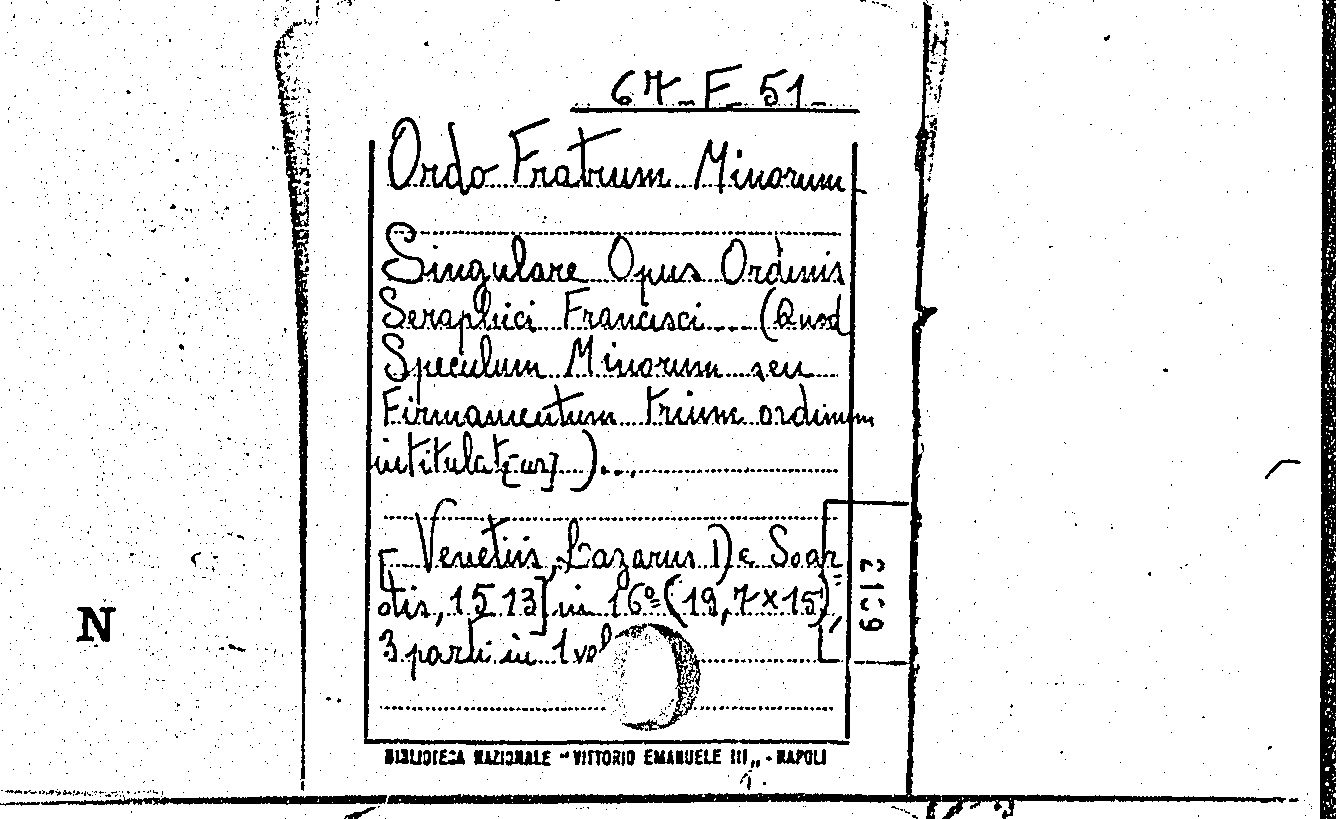 67-F 51-
Ordo Fratrum Minorum
Singulare Opus Ordinis
Seraphici Francisci... (Quod
Speculum Minorum seu
Firmamentum trium ordinum
intitulat[ur])...
[Venetiis, Lazarus De Soar=
dis, 1513] in 16º (19,7×15),
3 parti in 1 vol
BIBLIOTECA NAZIONALE "VITTORIO EMANUELE III" - NAPOLI
N